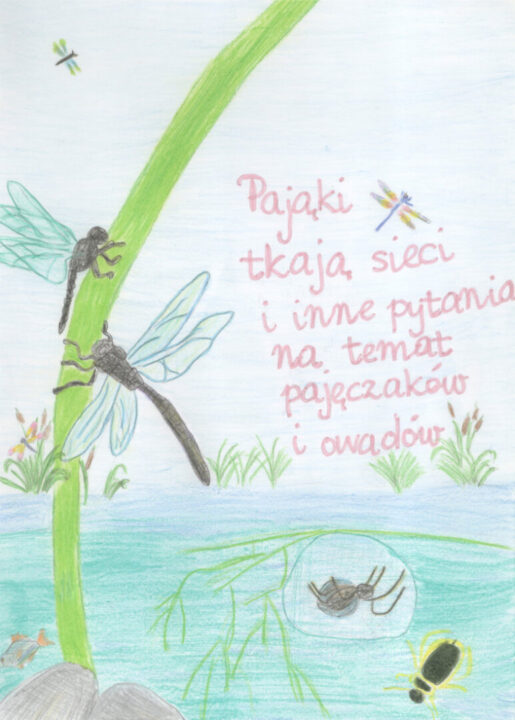 Pająki
tkają sieci
i inne pytania
na temat
pajęczaków
i owadów